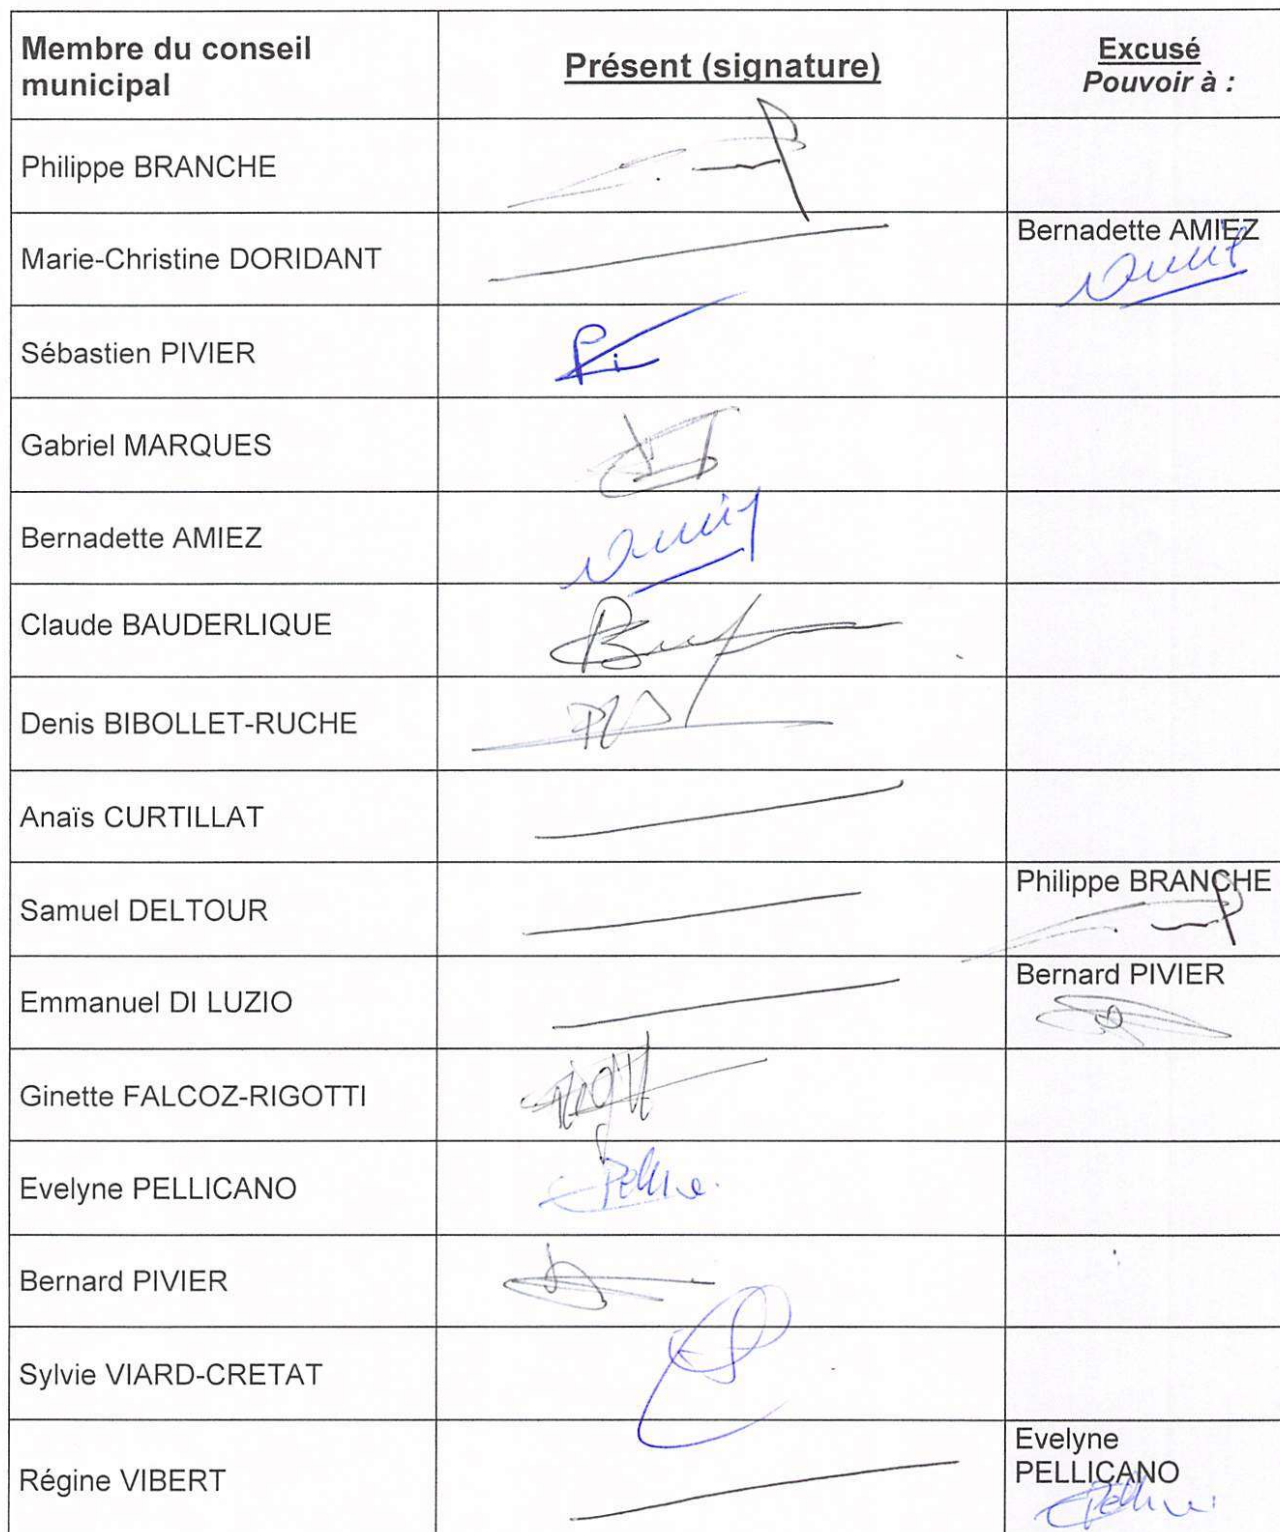 Membre du conseil
municipal
Présent (signature)
Excusé
Pouvoir à :
Philippe BRANCHE
Marie-Christine DORIDANT
Bernadette AMIEZ
Sébastien PIVIER
Gabriel MARQUES
Bernadette AMIEZ
Claude BAUDERLIQUE
Denis BIBOLLET-RUCHE
Anaïs CURTILLAT
Samuel DELTOUR
Philippe BRANCHE
Emmanuel DI LUZIO
Bernard PIVIER
Ginette FALCOZ-RIGOTTI
Evelyne PELLICANO
Bernard PIVIER
Sylvie VIARD-CRETAT
Régine VIBERT
Evelyne
PELLICANO